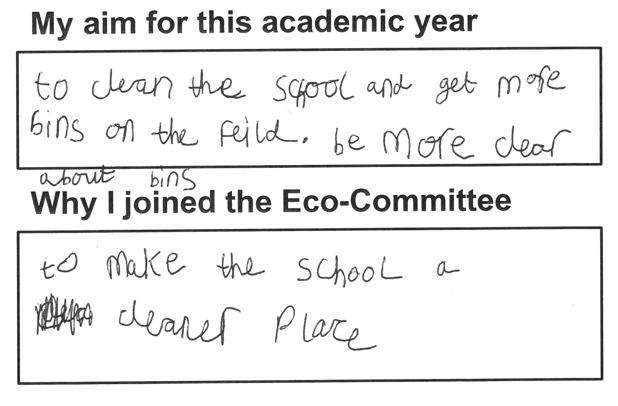 My aim for this academic year
to clean the school and get more
bins on the feild. be more clear
about bins
Why I joined the Eco-Committee
to make the school a
cleaner place